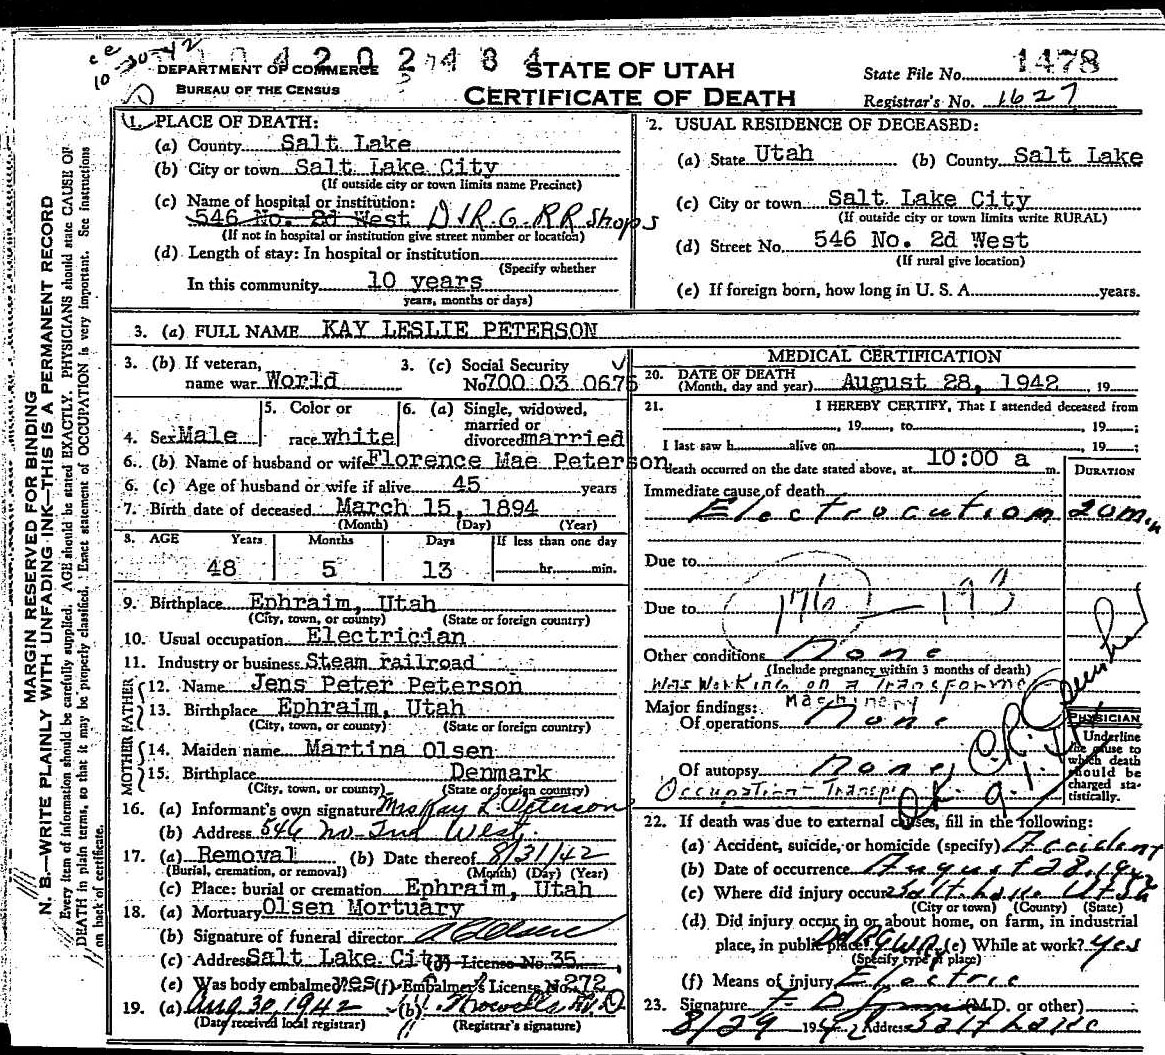 ce
10-30-42
DEPARTMENT OF COMMERCE
BUREAU OF THE CENSUS
STATE OF UTAH
CERTIFICATE OF DEATH
State File No. 1478
Registrar's No. 1627
MARGIN RESERVED FOR BINDING
N. B.—WRITE PLAINLY WITH UNFADING INK—THIS IS A PERMANENT RECORD
Every item of information should be carefully supplied. AGE should be stated EXACTLY. PHYSICIANS should state CAUSE OF
DEATH in plain terms, so that it may be properly classified. Exact statement of OCCUPATION is very important. See instructions
on back of certificate.
1. PLACE OF DEATH:
(a) County Salt Lake
(b) City or town Salt Lake City
(If outside city or town limits name Precinct)
(c) Name of hospital or institution:
546 No. 2d West D&RG-RR Shops
(If not in hospital or institution give street number or location)
(d) Length of stay: In hospital or institution
(Specify whether
In this community 10 years
years, months or days)
2. USUAL RESIDENCE OF DECEASED:
(a) State Utah (b) County Salt Lake
(c) City or town Salt Lake City
(If outside city or town limits write RURAL)
(d) Street No. 546 No. 2d West
(If rural give location)
(e) If foreign born, how long in U. S. A. years.
3. (a) FULL NAME KAY LESLIE PETERSON
3. (b) If veteran, name war World
3. (c) Social Security No. 700 03 0675
4. Sex Male
5. Color or race white
6. (a) Single, widowed, married or divorced married
6. (b) Name of husband or wife Florence Mae Peterson
6. (c) Age of husband or wife if alive 45 years
7. Birth date of deceased March 15, 1894
(Month) (Day) (Year)
8. AGE Years Months Days If less than one day
48 5 13 hr. min.
9. Birthplace Ephraim, Utah
(City, town, or county) (State or foreign country)
10. Usual occupation Electrician
11. Industry or business Steam railroad
FATHER
12. Name Jens Peter Peterson
13. Birthplace Ephraim, Utah
(City, town, or county) (State or foreign country)
MOTHER
14. Maiden name Martina Olsen
15. Birthplace Denmark
(City, town, or county) (State or foreign country)
16. (a) Informant's own signature Mrs Kay L. Peterson
(b) Address 546 no-2nd West
17. (a) Removal (b) Date thereof 8/31/42
(Burial, cremation, or removal) (Month) (Day) (Year)
(c) Place: burial or cremation Ephraim, Utah
18. (a) Mortuary Olsen Mortuary
(b) Signature of funeral director
(c) Address Salt Lake City License No. 35
(e) Was body embalmed? yes (f) Embalmer's License No. 272
19. (a) Aug 30, 1942 (b) M.D.
(Date received local registrar) (Registrar's signature)
MEDICAL CERTIFICATION
20. DATE OF DEATH
(Month, day and year) August 28, 1942, 19
21. I HEREBY CERTIFY, That I attended deceased from
, 19 , to , 19 ;
I last saw h alive on , 19 ;
death occurred on the date stated above, at 10:00 a m.
DURATION
Immediate cause of death
Electrocution 20 min
Due to
Due to 176 - 193
Other conditions None
(Include pregnancy within 3 months of death)
Was Working on a Transformer
Machinery
Major findings:
Of operations None
Of autopsy None
Occupation-Transp.
OK 9.1.
PHYSICIAN
Underline the cause to which death should be charged statistically.
22. If death was due to external causes, fill in the following:
(a) Accident, suicide, or homicide (specify) Accident
(b) Date of occurrence August 28, 1942
(c) Where did injury occur Salt Lake Utah
(City or town) (County) (State)
(d) Did injury occur in or about home, on farm, in industrial
place, in public place? D&RGWRR (e) While at work? yes
(Specify type of place)
(f) Means of injury Electric
23. Signature (M.D. or other)
8/29 1942 Address Salt Lake